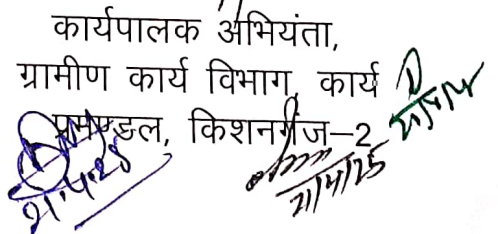 कार्यपालक अभियंता,
ग्रामीण कार्य विभाग, कार्य
प्रमण्डल, किशनगंज–2